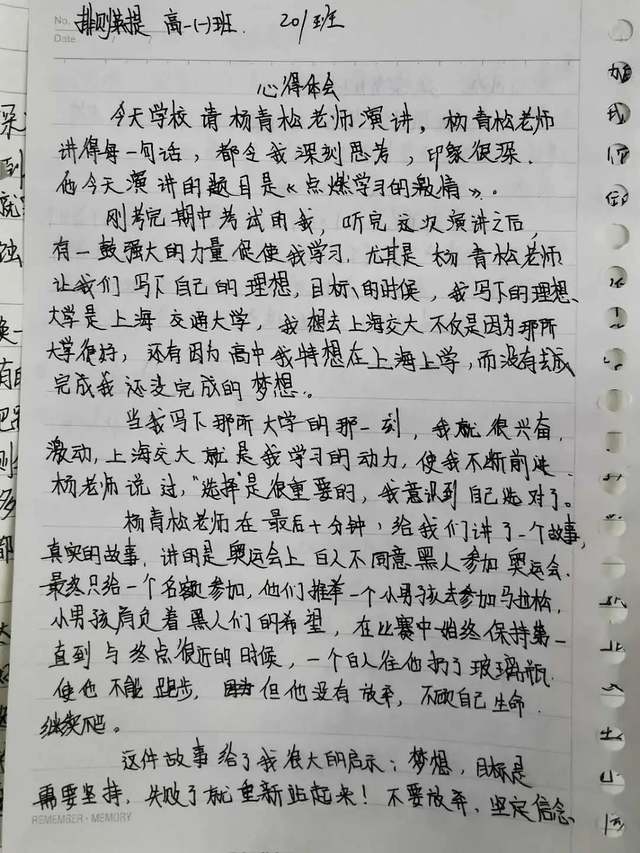 No.
Date
排则莱提 高一(一)班. 201班
心得体会
今天学校请杨青松老师演讲,杨青松老师
讲得每一句话,都令我深刻思考,印象很深.
他今天演讲的题目是《点燃学习的激情》。
刚考完期中考试的我,听完这次演讲之后,
有一股强大的力量促使我学习.尤其是杨青松老师
让我们写下自己的理想,目标、的时候,我写下的理想、
大学是上海交通大学,我想去上海交大不仅是因为那所
大学很好,还有因为高中我特想在上海上学,而没有去成
完成我还没完成的梦想。
当我写下那所大学的那一刻,我就很兴奋,
激动,上海交大就是我学习的动力,使我不断前进.
杨老师说过,"选择"是很重要的,我意识到自己选对了。
杨青松老师在最后十分钟,给我们讲了一个故事,
真实的故事,讲的是奥运会上白人不同意黑人参加奥运会.
最终只给一个名额参加,他们推举一个小男孩去参加马拉松,
小男孩肩负着黑人们的希望,在比赛中始终保持第一
直到与终点很近的时候,一个白人往他扔了玻璃瓶.
使他不能跑步,但他没有放弃,不顾自己生命.
继续爬。
这件故事给了我很大的启示:梦想,目标是
需要坚持,失败了就重新站起来!不要放弃、坚定信念
REMEMBER · MEMORY